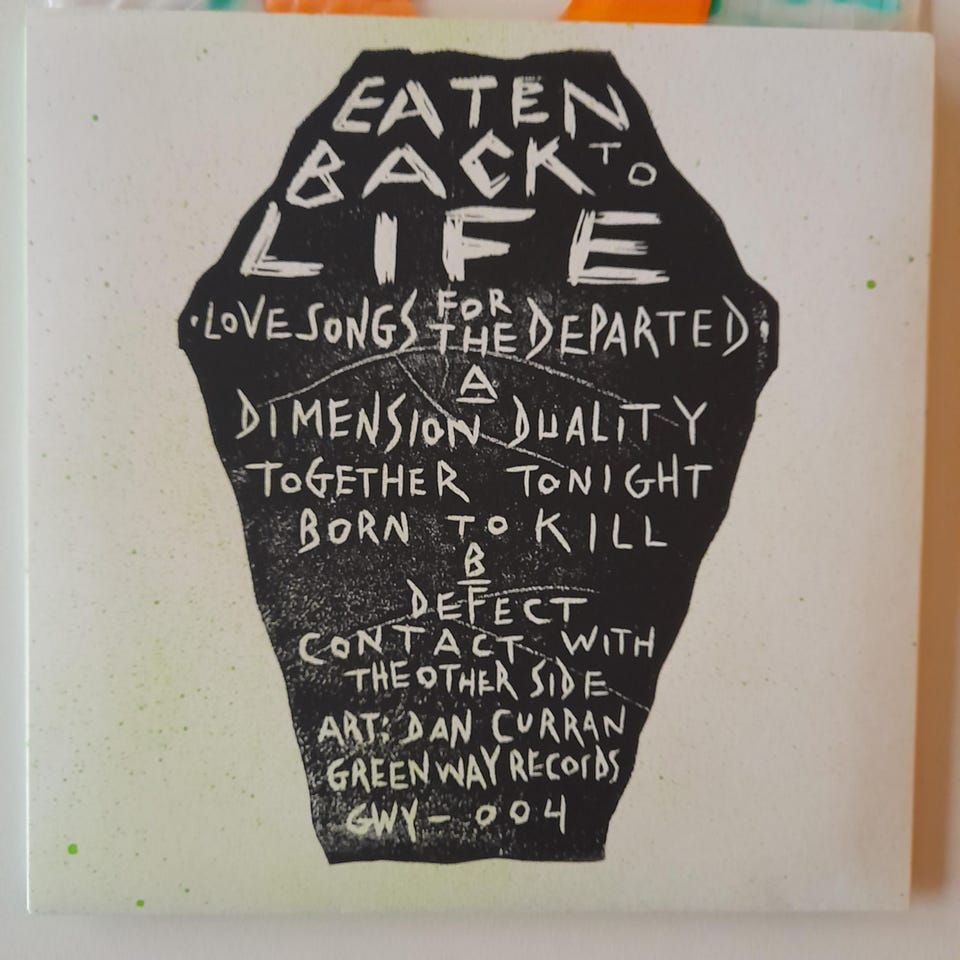 EATEN
BACK TO
LIFE
·LOVE SONGS FOR THE DEPARTED·
A
DIMENSION DUALITY
TOGETHER TONIGHT
BORN TO KILL
B
DEFECT
CONTACT WITH
THE OTHER SIDE
ART: DAN CURRAN
GREENWAY RECORDS
GWY-004